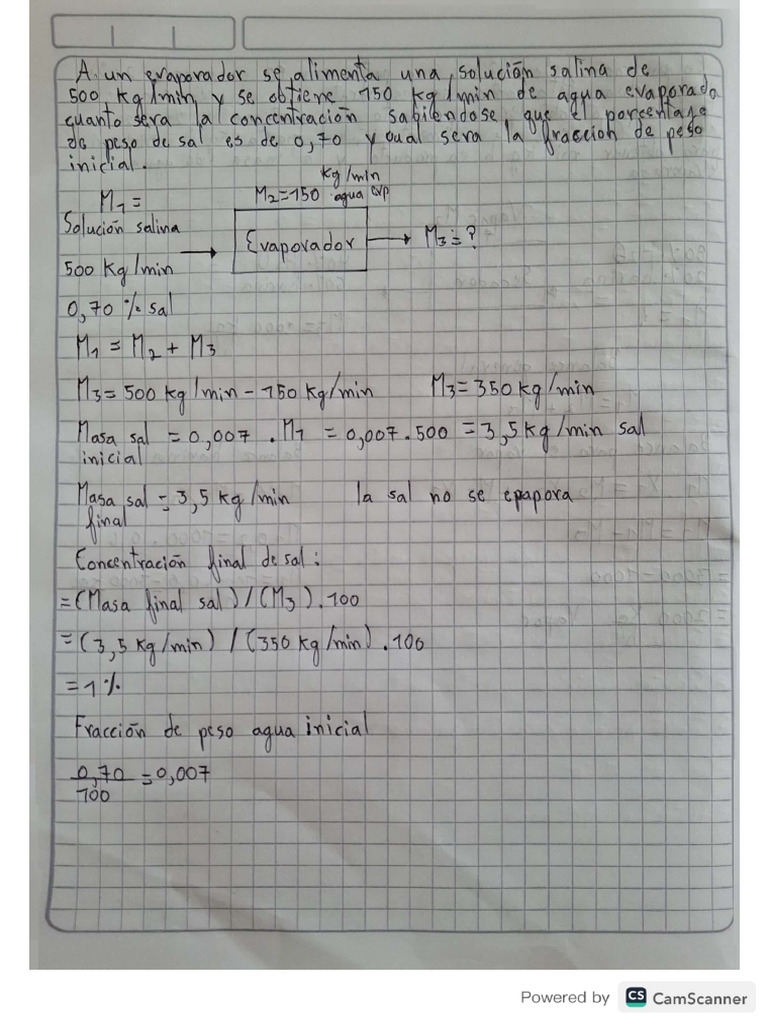 A un evaporador se alimenta una solución salina de
500 kg/min y se obtiene 150 kg/min de agua evaporada
cuanto sera la concentración sabiendose que el porcentaje
de peso de sal es de 0,70 y cual sera la fraccion de peso
inicial.
kg/min
M1 = M2=150 agua evp
Solución salina
Evaporador M3=?
500 Kg/min
0,70 % sal
M1 = M2 + M3
M3= 500 kg/min - 150 kg/min M3= 350 kg/min
Masa sal = 0,007 . M1 = 0,007 . 500 = 3,5 kg/min sal
inicial
Masa sal = 3,5 kg/min la sal no se epapora
final
Concentración final de sal:
= (Masa final sal) / (M3) . 100
= (3,5 kg/min) / (350 kg/min) . 100
= 1 %
Fracción de peso agua inicial
0,70 = 0,007
100
Powered by CS CamScanner